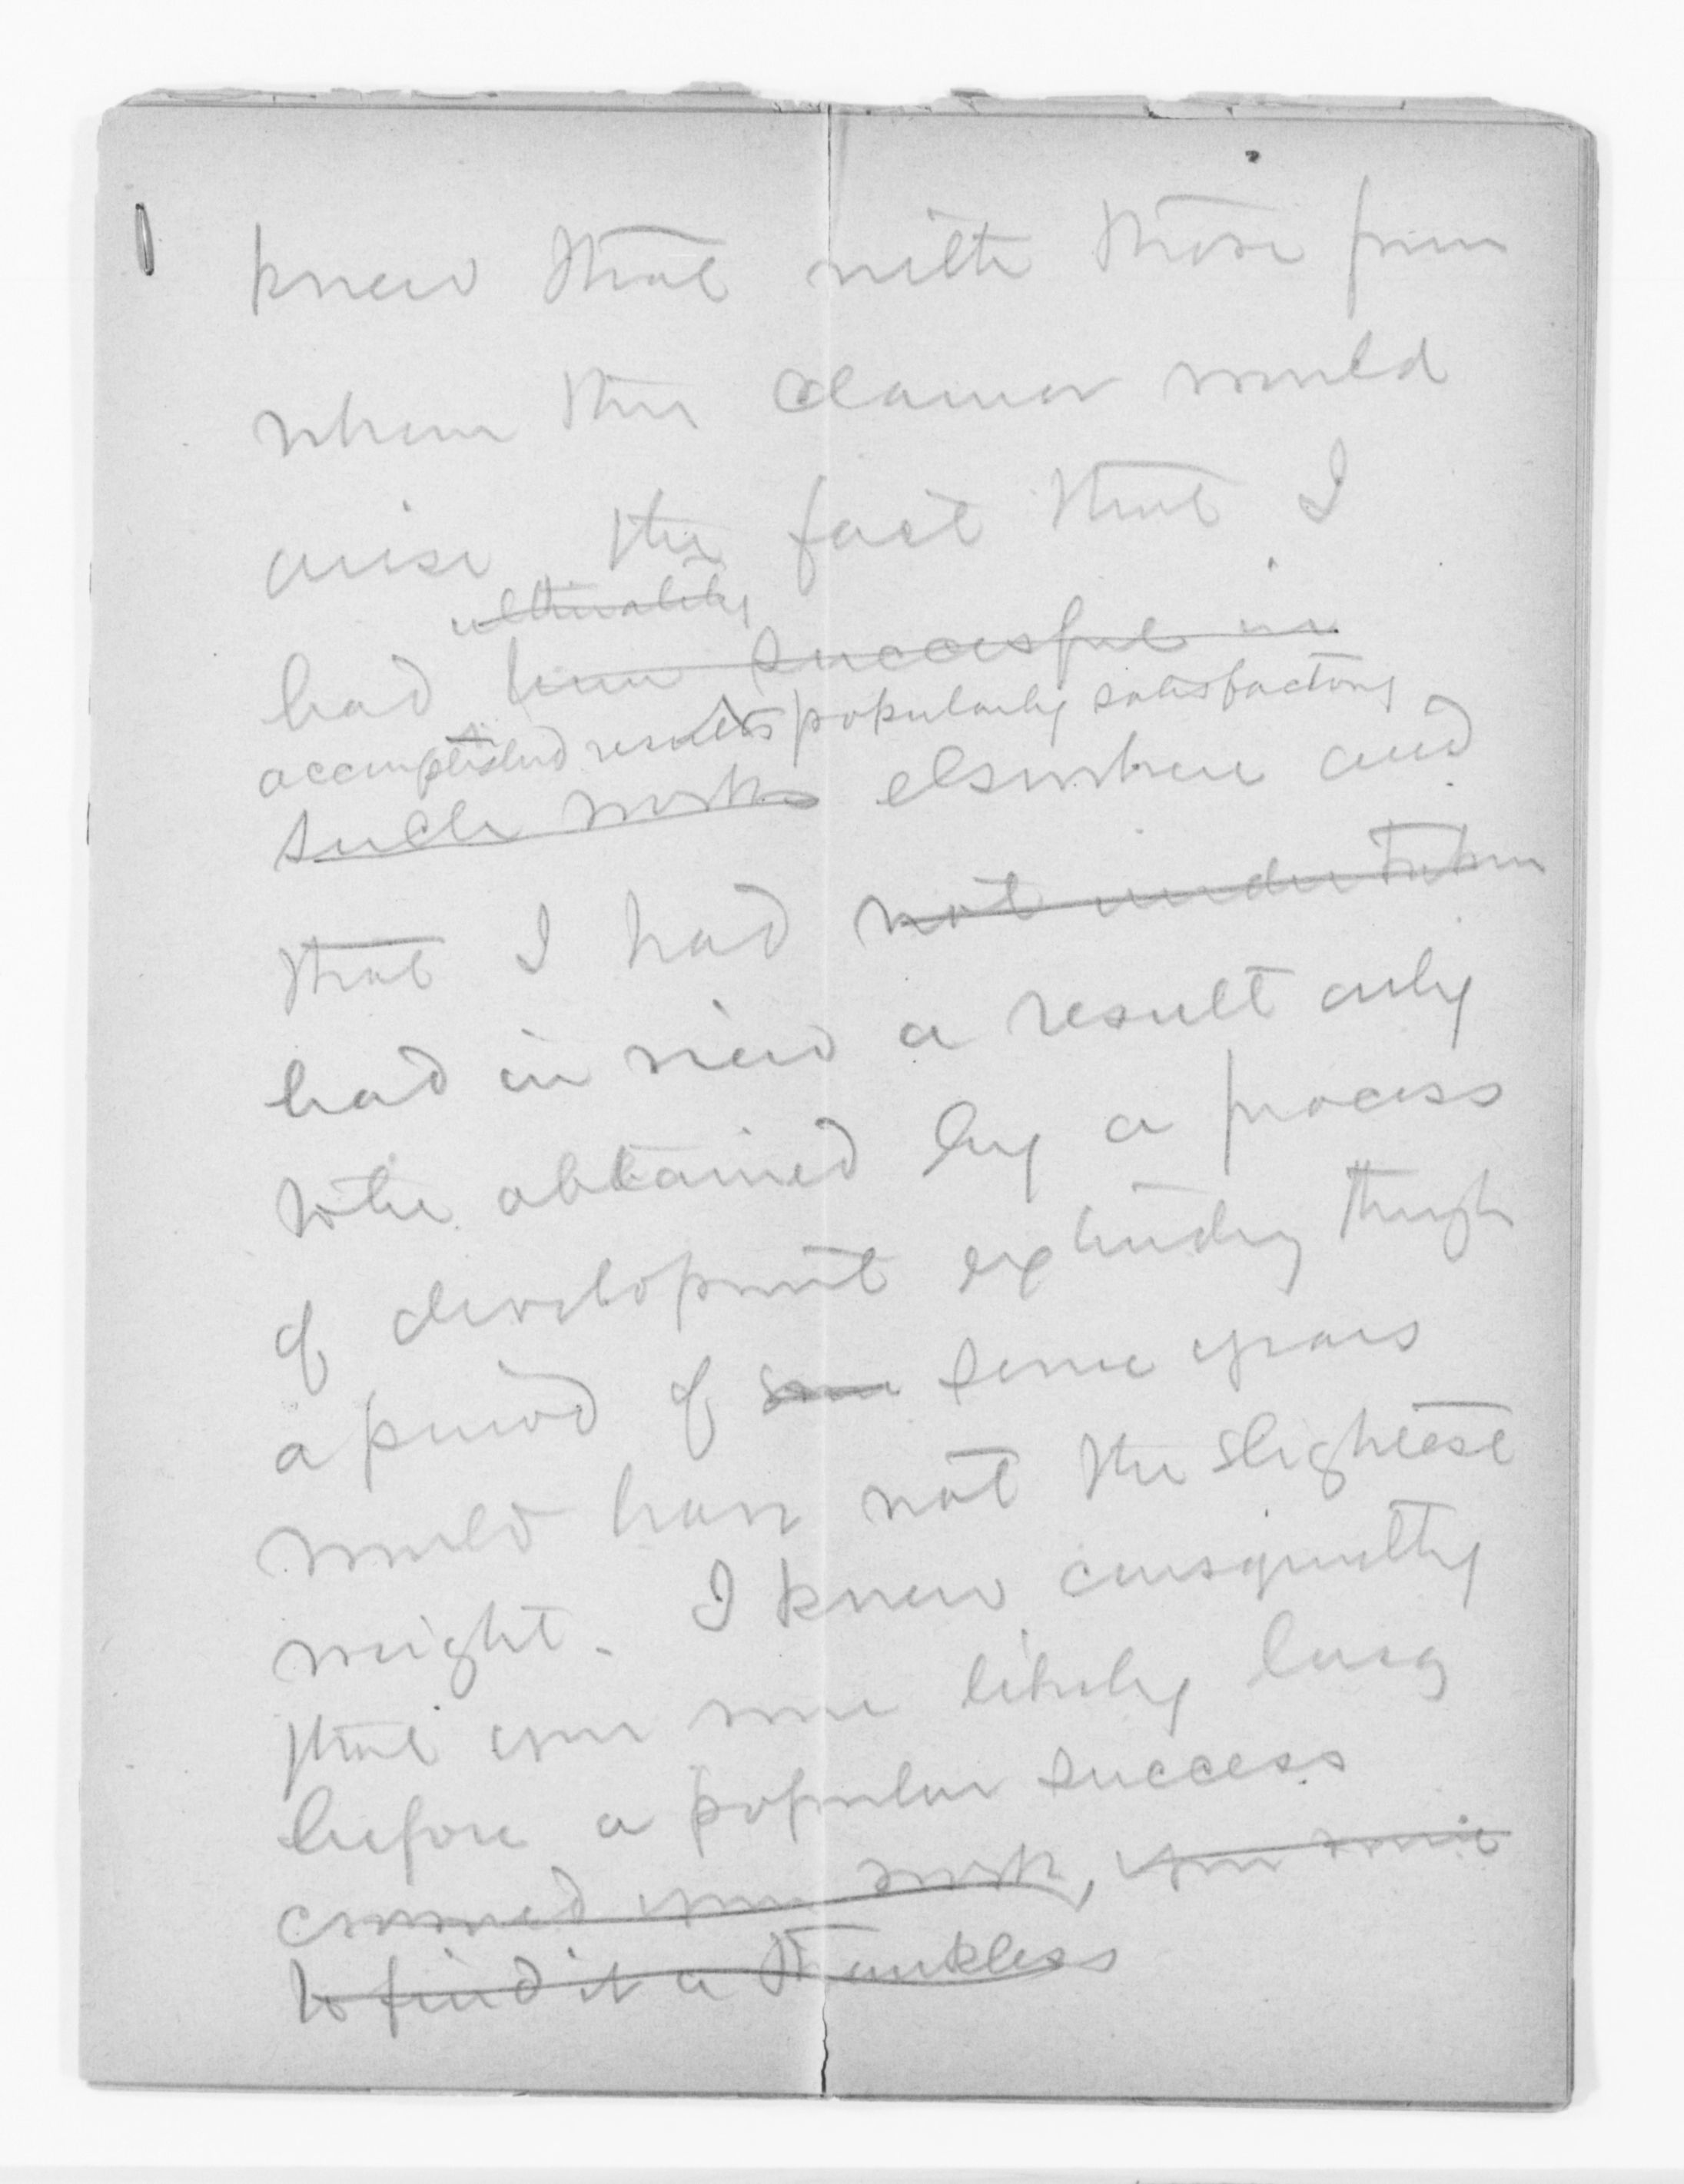 knew that with those from
whom this clamor would
arise the fact that I
ultimately
had been successful in
accomplished results popularly satisfactory
such works elsewhere and
that I had not undertaken
had in view a result only
to be obtained by a process
of development extending through
a period of some some years
would have not the slightest
weight. I knew consequently
that you were likely long
before a popular success
crowned your work, you were
to find it a thankless